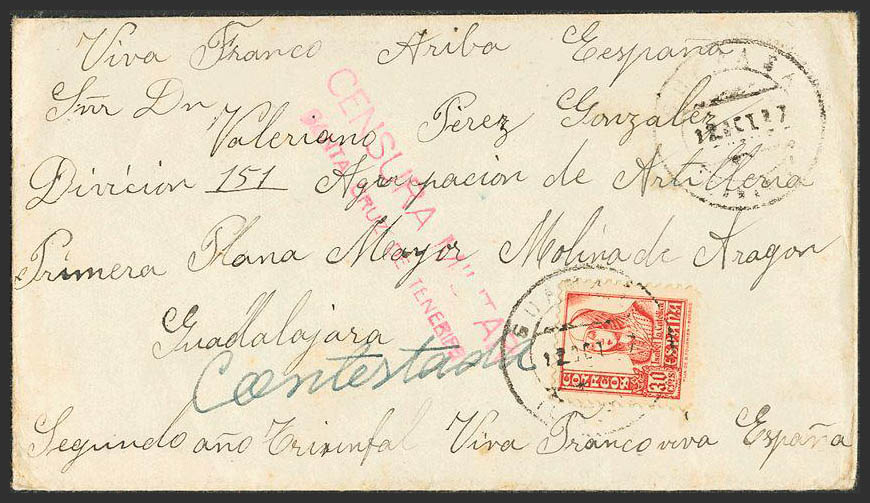 Viva Franco Ariba Eespaña
Snr Dn
Valeriano Pérez Gonzalez
Divicion 151 Agrupacion de Artilleria
Primera Plana Mayor Molina de Aragon
Guadalajara
Contestada
Segundo año Triunfal Viva Franco viva España
CENSURA MILITAR
SANTA CRUZ DE TENERIFE
12 OCT
12 OCT
CORREOS
30
CTS
ESPAÑA